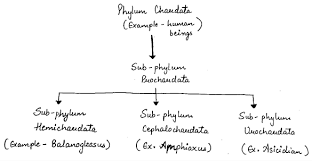 Phylum Chordata
(Example - human
beings
Sub-phylum
Prochordata
Sub-phylum
Hemichordata
(Example - Balanoglossus)
Sub-phylum
Cephalochordata
(Ex. Amphioxus)
Sub-phylum
Urochordata
(Ex. Ascidian)